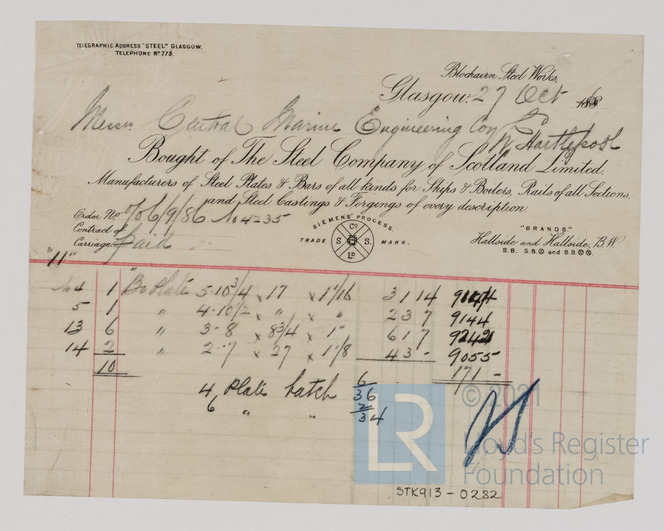 TELEGRAPHIC ADDRESS "STEEL" GLASGOW.
TELEPHONE No 773.
Blochairn Steel Works,
Glasgow. 27 Oct 188
Messrs Central Marine Engineering Coy
W. Hartlepool
Bought of The Steel Company of Scotland Limited.
Manufacturers of Steel Plates & Bars of all kinds for Ships & Boilers, Rails of all Sections,
and Steel Castings & Forgings of every description
Order No of 6/9/86 No 4-35
Contract of
Carriage Paid
SIEMENS' PROCESS.
TRADE MARK.
Co
S S
LD
"BRANDS"
Hallside and Hallside, B.W
S.B. S.B. and S.B.
"11"
4 1 Bo Plate 5-10 3/4 x 17 x 1 1/16 3 1 14
5 1 " 4-10 1/2 x " x " 2 3 7 9144
13 6 " 3-8 x 8 3/4 x 1" 6 1 7
14 2 " 2-7 x 27 x 1 1/8 4 3 - 9055
10 171 -
4 Plate hatch 6
6 " " 36
34
© 2021
LR
Lloyd's Register
Foundation
STK913-0282